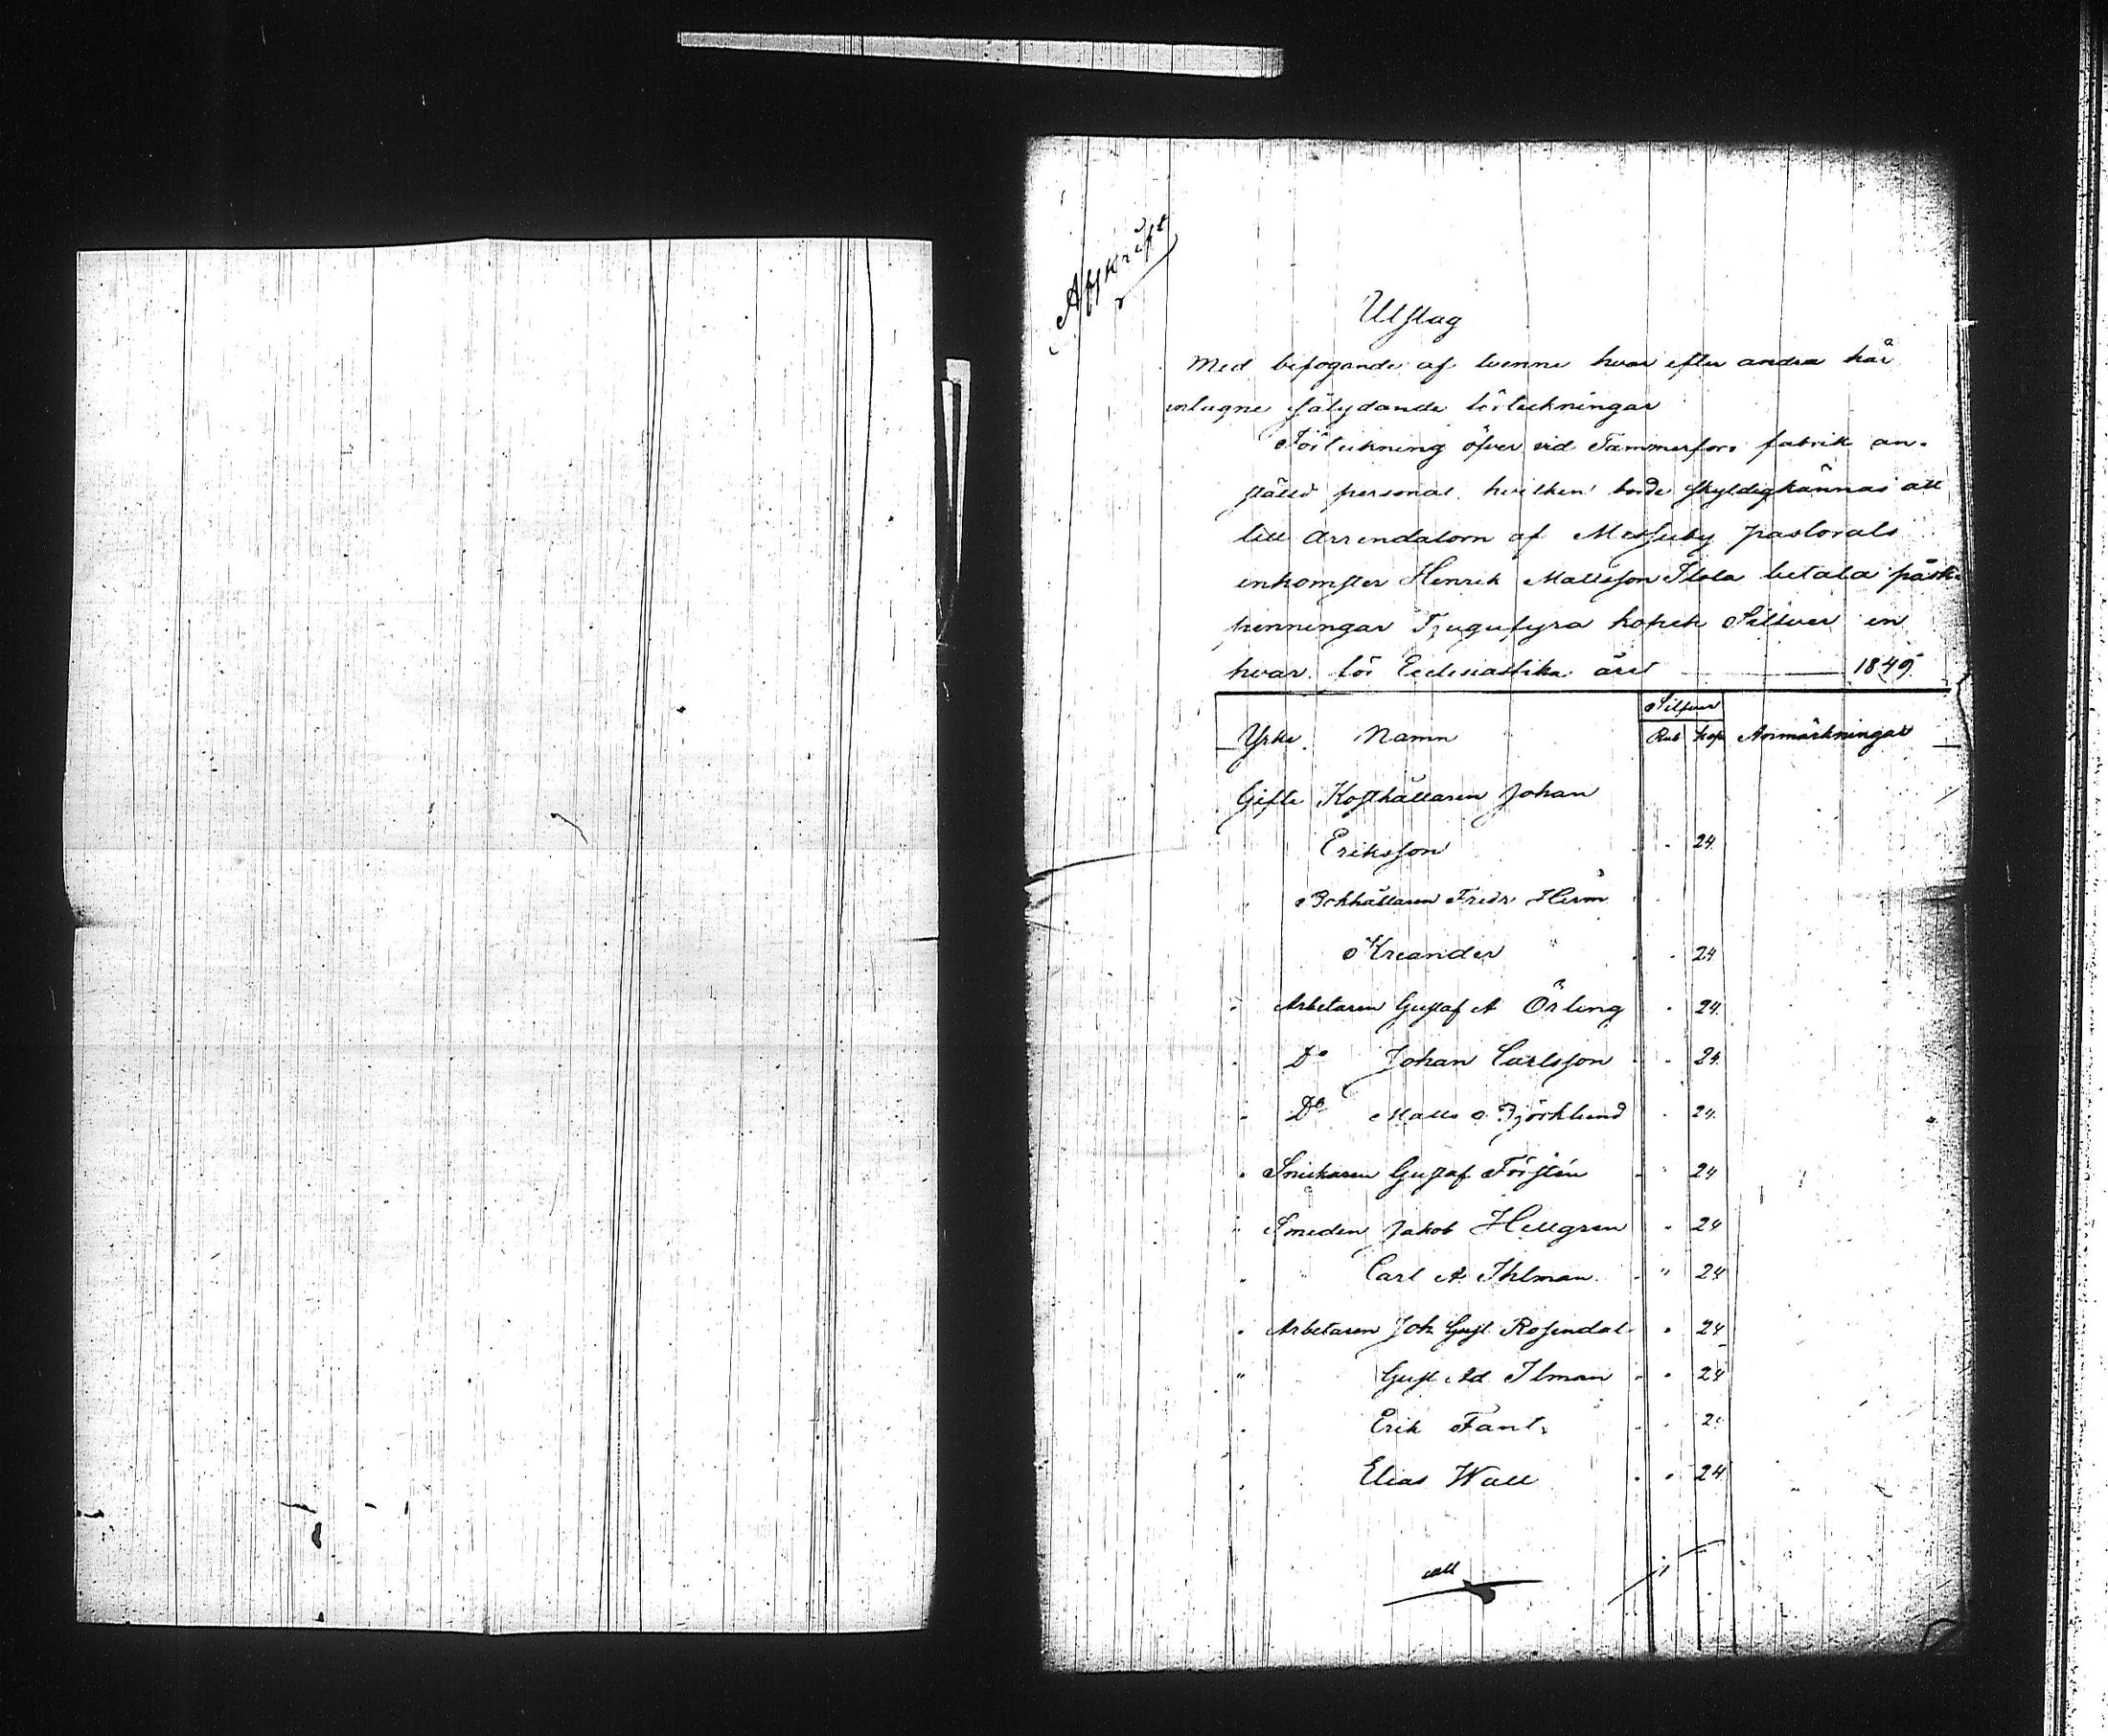 Afskrift
Utslag
Med befogande af tvenne hvar efter andra här
intagne sålydande förtekningar
Förtekning öfver vid Tammerfors fabrik an-
ställd personal, hvilken borde skyldigkännas att
till Arrendatorn af Messuby pastorals
inkomster Henrik Mattsson Ilola betala påsk-
penningar Tjugufyra kopek Silfver en
hvar för Ecclesiastika året 1849.
Silfver
Yrke. Namn Rub kop Anmärkningar
Gifte Kosthållaren Johan
Eriksson 24.
" Bokhållaren Fredr Herm
Kreander " 24
" Arbetaren Gustaf A Örling " 24.
" Do Johan Carlsson " 24.
" Do Matts Björklund " 24.
" Snickaren Gustaf Förstén " 24
" Smeden Jakob Hellgren " 24
" " Carl A Ihlman " 24
" Arbetaren Joh Gust Rosendal " 24
" Gust Ad Ilman " 24
" Erik Fant
" Elias Wall " 24